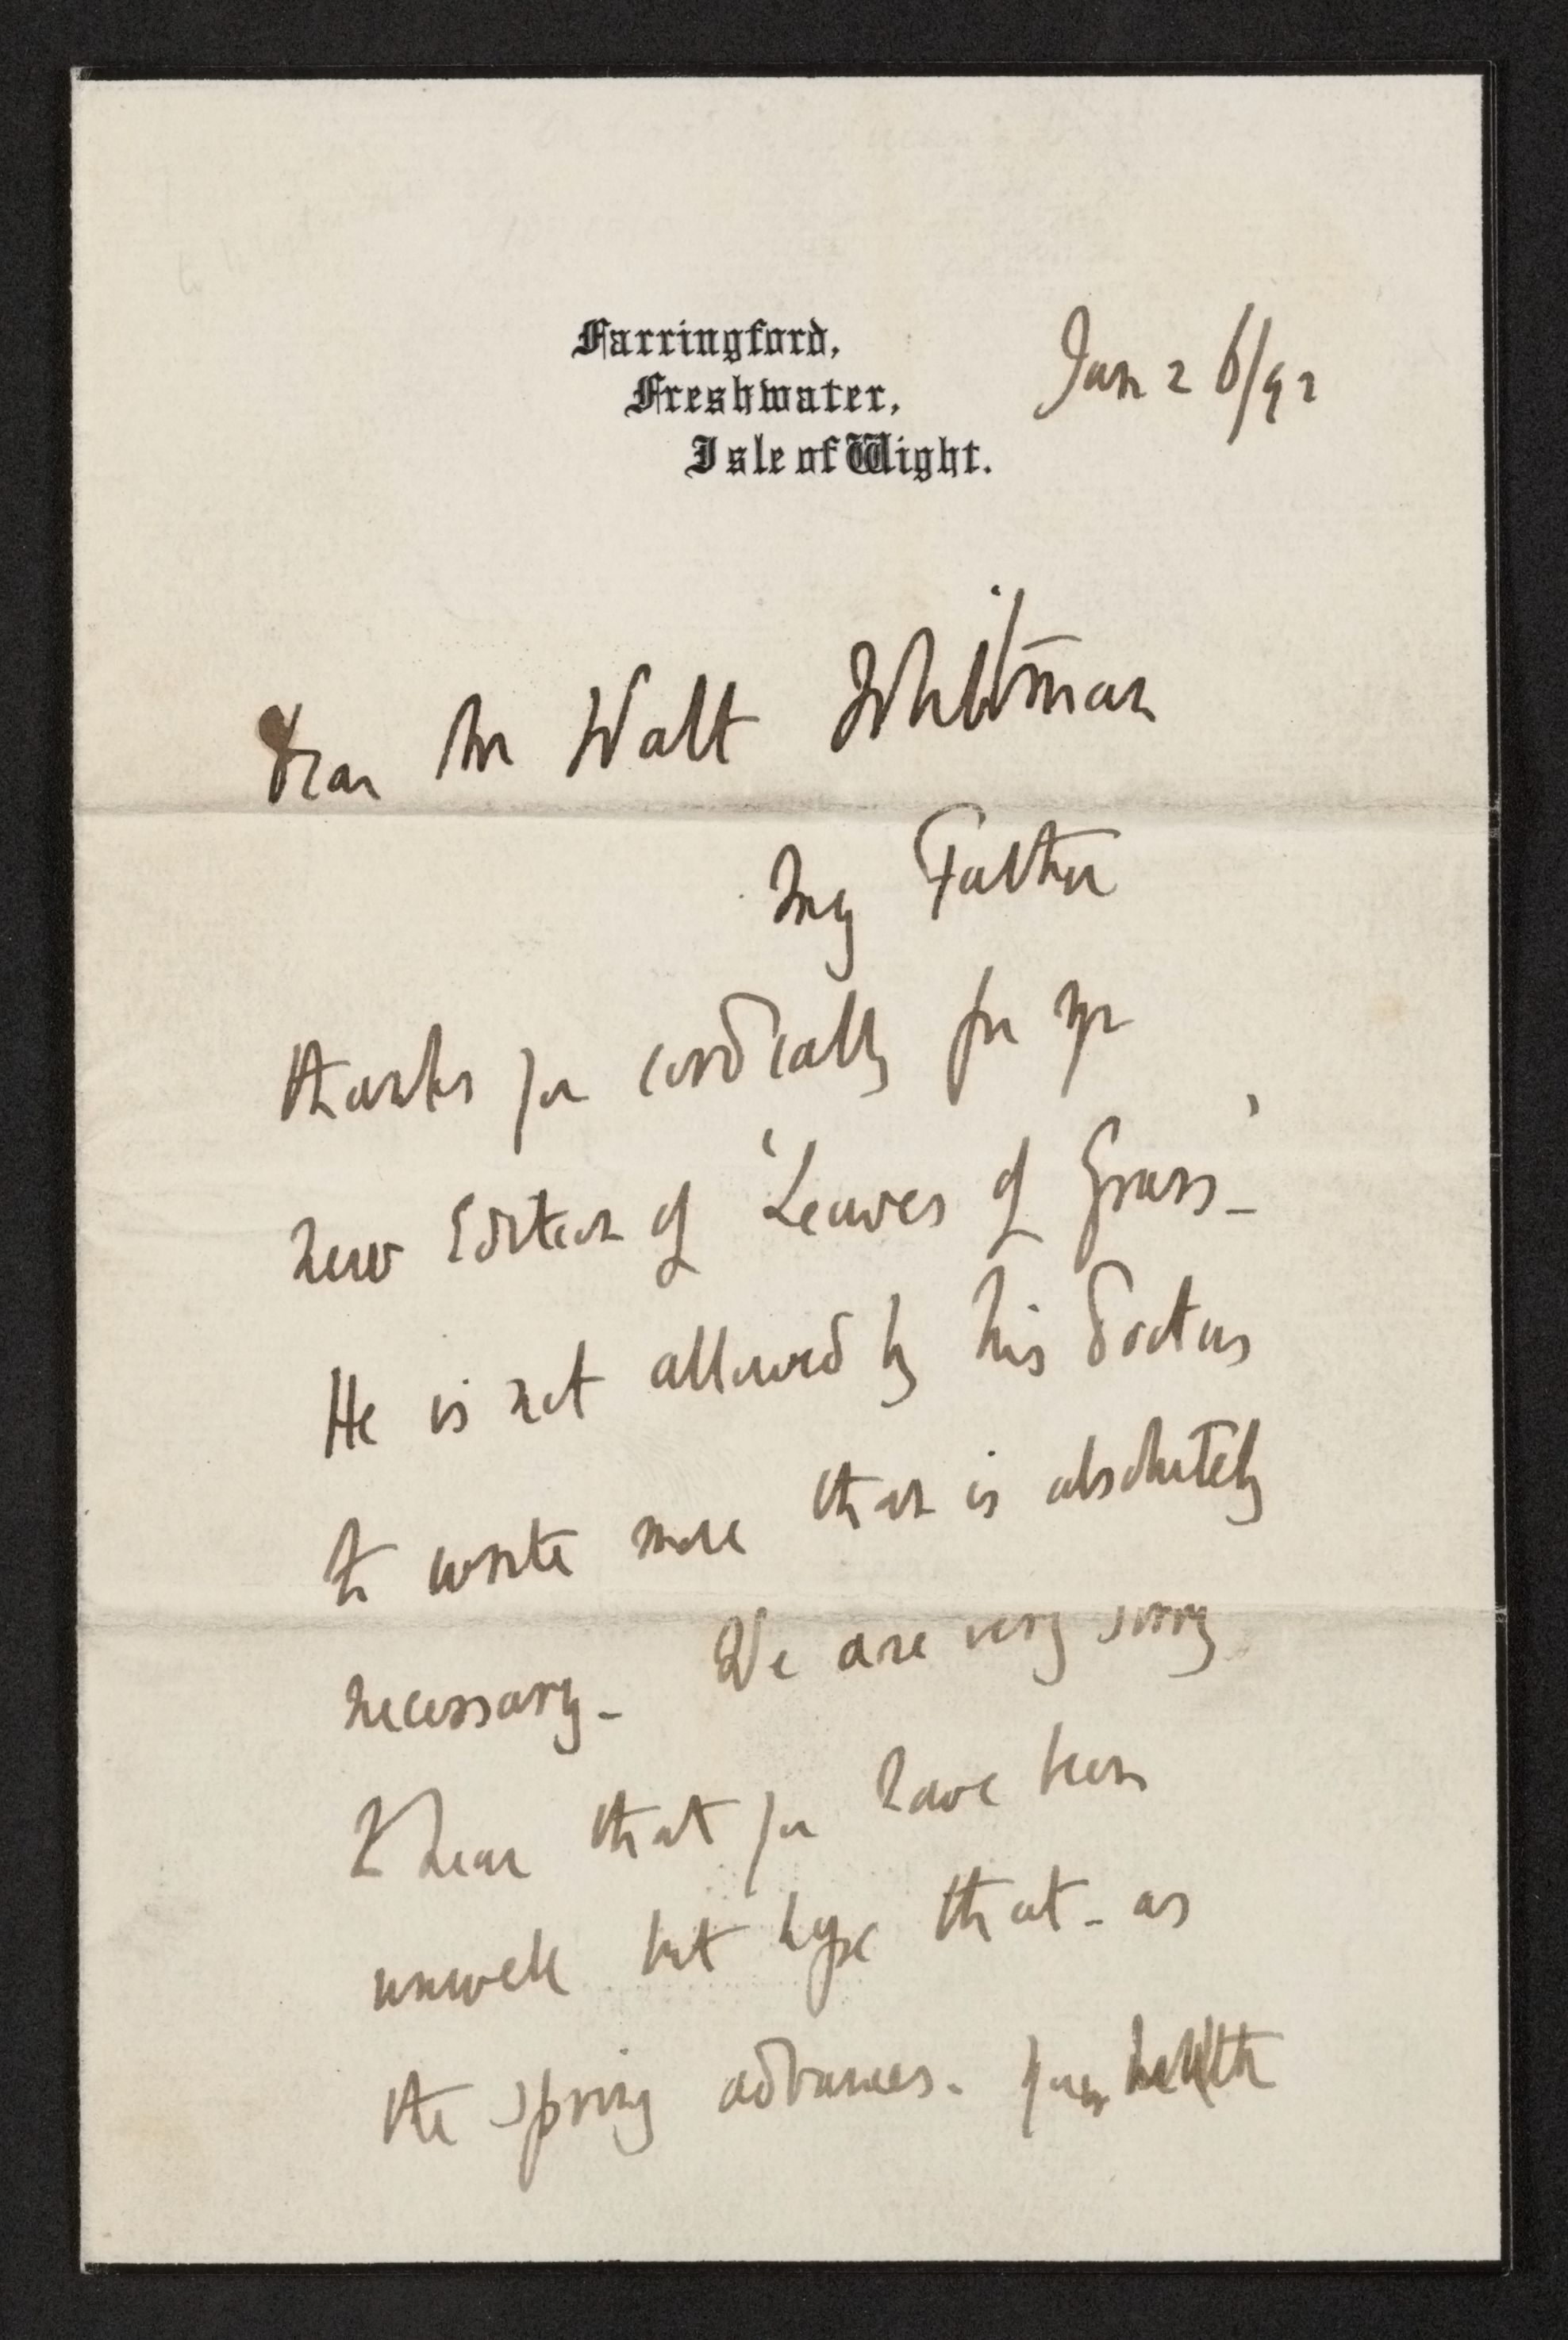 Farringford,
Freshwater,
Isle of Wight.
Jan 26/92
Dear Mr Walt Whitman
My Father
thanks you cordially for yr
new Edition of 'Leaves of Grass'-
He is not allowed by his doctors
to write more than is absolutely
necessary- We are very sorry
to hear that you have been
unwell but hope that- as
the spring advances- your health